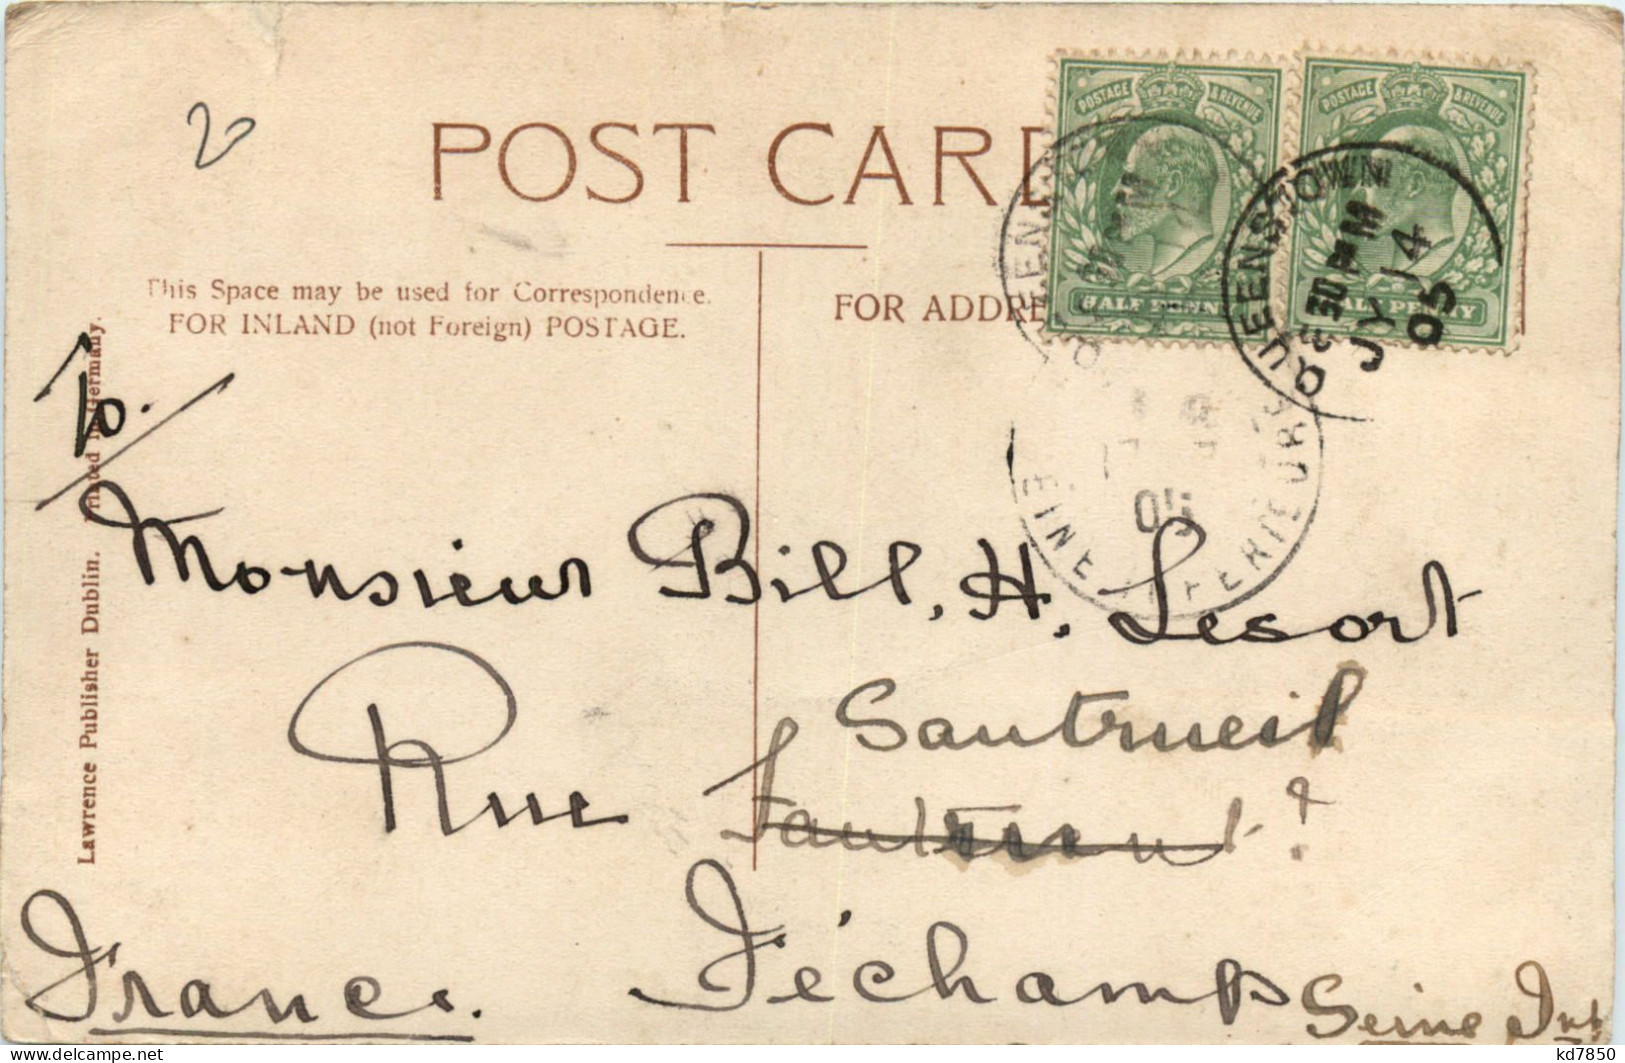 20
POST CARD
POSTAGE & REVENUE
HALF PENNY
POSTAGE & REVENUE
HALF PENNY
QUEENSTOWN
QUEENSTOWN
30 PM
JY 14
05
This Space may be used for Correspondence.
FOR INLAND (not Foreign) POSTAGE.
FOR ADDRE
05
SEINE INFERIEURE
To.
Monsieur Bill. H. Lesort
Rue Sautrueil
Féchamps
Seine Inf
France.
Lawrence Publisher Dublin. Printed in Germany.
kd7850